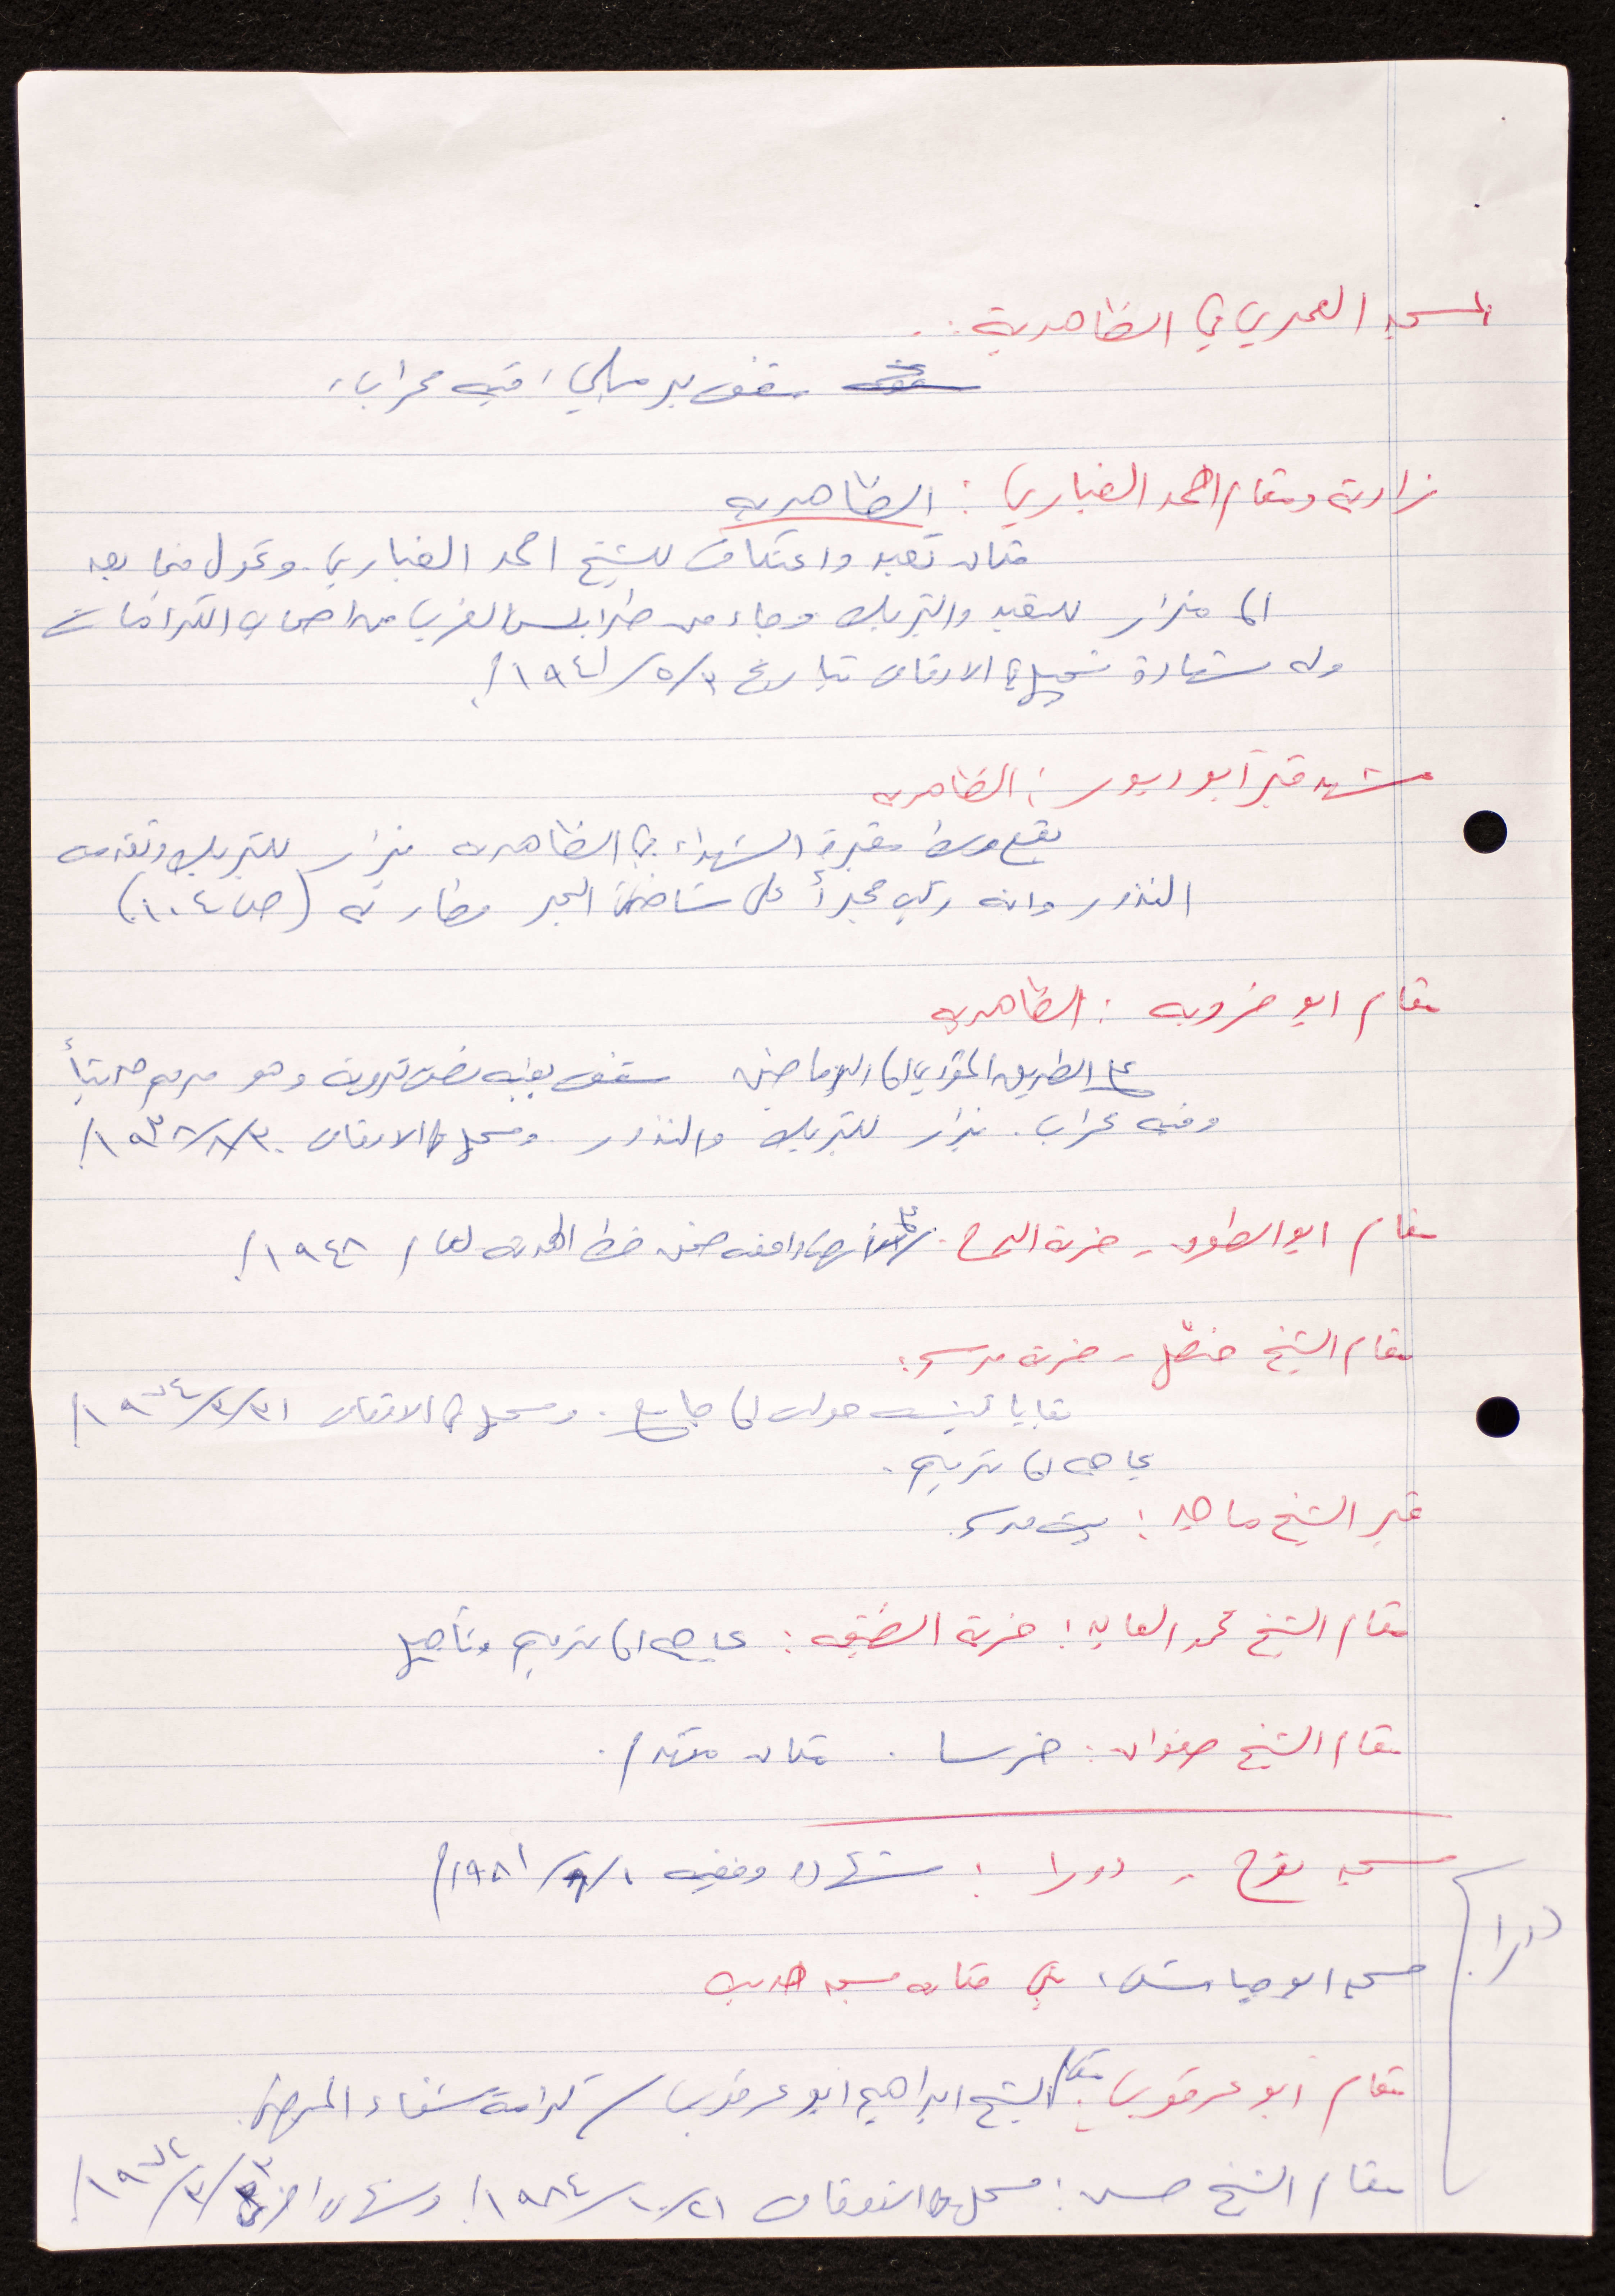 المسجد العمري في الظاهرية :
سقف برميلي، فيه محراب،
زاوية ومقام احمد الغباري : الظاهرية
مكان تعبد واعتكاف للشيخ احمد الغباري. وتحول فيما بعد
الى مزار للتعبد والتبريك وجاء من طرابلس الغرب من اصحاب الكرامات
وله شهادة تسجيل في الاوقاف بتاريخ ٣/٥/١٩٤١م
مشهد قبر أبو دبور : الظاهرية
يقع وسط مقبرة الشهداء في الظاهرية يزار للتبريك وتقدمه
النذور وانه ركب حجراً على شاطئ البحر وطار به (ص١٠٤)
مقام ابو خروبه : الظاهرية
على الطريق المؤدي الى الرماضين سقف بعضه وهو مرمم حديثاً
وفيه محراب. يزار للتبريك والنذور ومسجل في الاوقاف ٣٠/٨/١٩٣٨م
مقام ابو الطوق - خربة داخله ضمن خط الهدنة لعام ١٩٤٨م
مقام الشيخ فضل - خربة مرسم :
بقايا كنيسة حولت الى جامع. ومسجل في الاوقاف ٣١/٣/١٩٧٤م
بحاجه الى ترميم.
قبر الشيخ ماجد : بيت مرسم
مقام الشيخ محمد العابد : خربة الضيقه : بحاجه الى ترميم وتأهيل
مقام الشيخ صفوان : خرسا . مكان متهدم.
مسجد نوح - دورا : شهادة وقفيه ١٩٨١م
دورا
مسجد ابو جياش، بني مكانه مسجد حديث
مقام أبو عرقوب : مقام الشيخ ابراهيم ابو عرقوب / كرامة شفاء المرضى.
مقام الشيخ حسن : مسجل في الاوقاف ٢١/١٠/١٩٨٤م وشهادة اخرى ١٩٧٤م